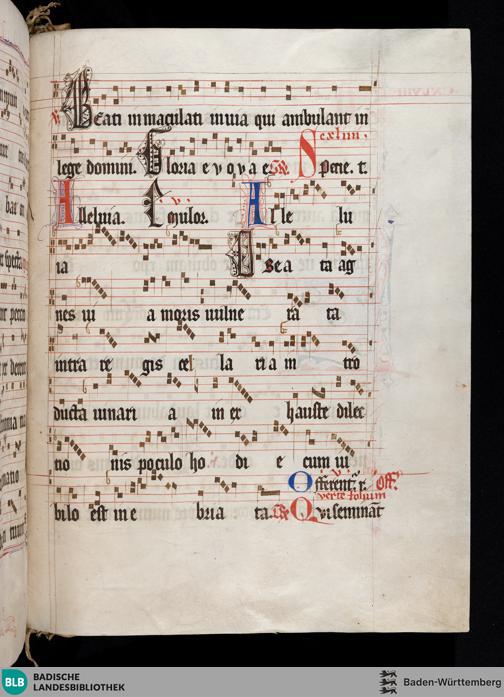 Beati inmaculati in via qui ambulant in
lege domini. Gloria e v o v a e. Specie. t.
Alleluia. Al le lu
ia Ista ag
nes vi a moris vulne ra ta
intra re gis cel la ria in tro
ducta iuinari a in ex hauste dilec
no nis poculo ho di e cum iu
Offerent r. off.
verte folium
bilo est in e bria ta. Qui seminat
BLB BADISCHE
LANDESBIBLIOTHEK
Baden-Württemberg